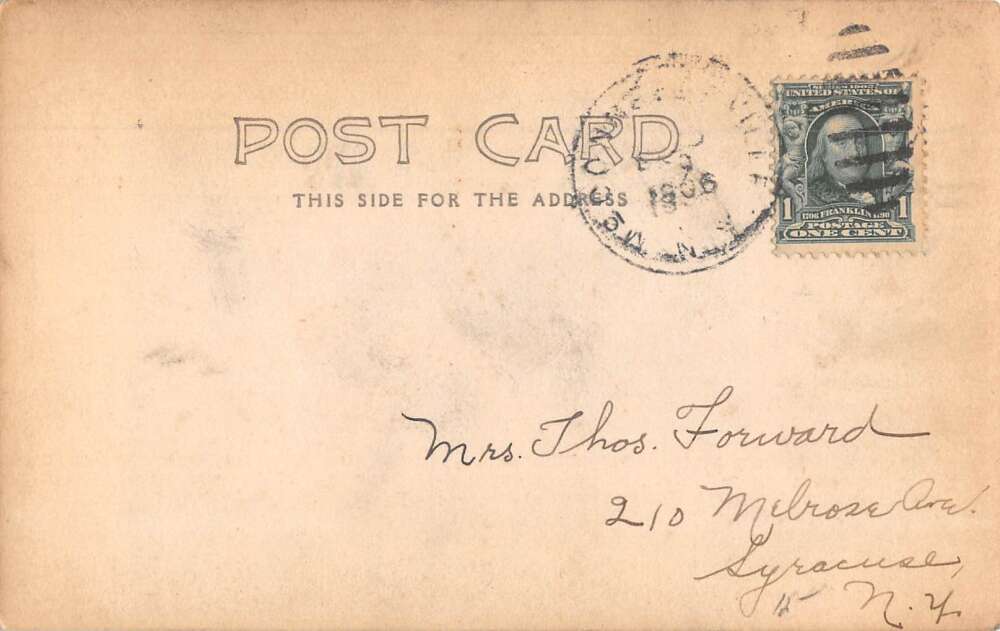 SERIES 1902
UNITED STATES OF
AMERICA
POST CARD
THIS SIDE FOR THE ADDRESS
1906
N.Y.
1 1706 FRANKLIN 1790 1
POSTAGE
ONE CENT
Mrs. Thos. Forward
210 Melrose Ave.
Syracuse,
N.Y.